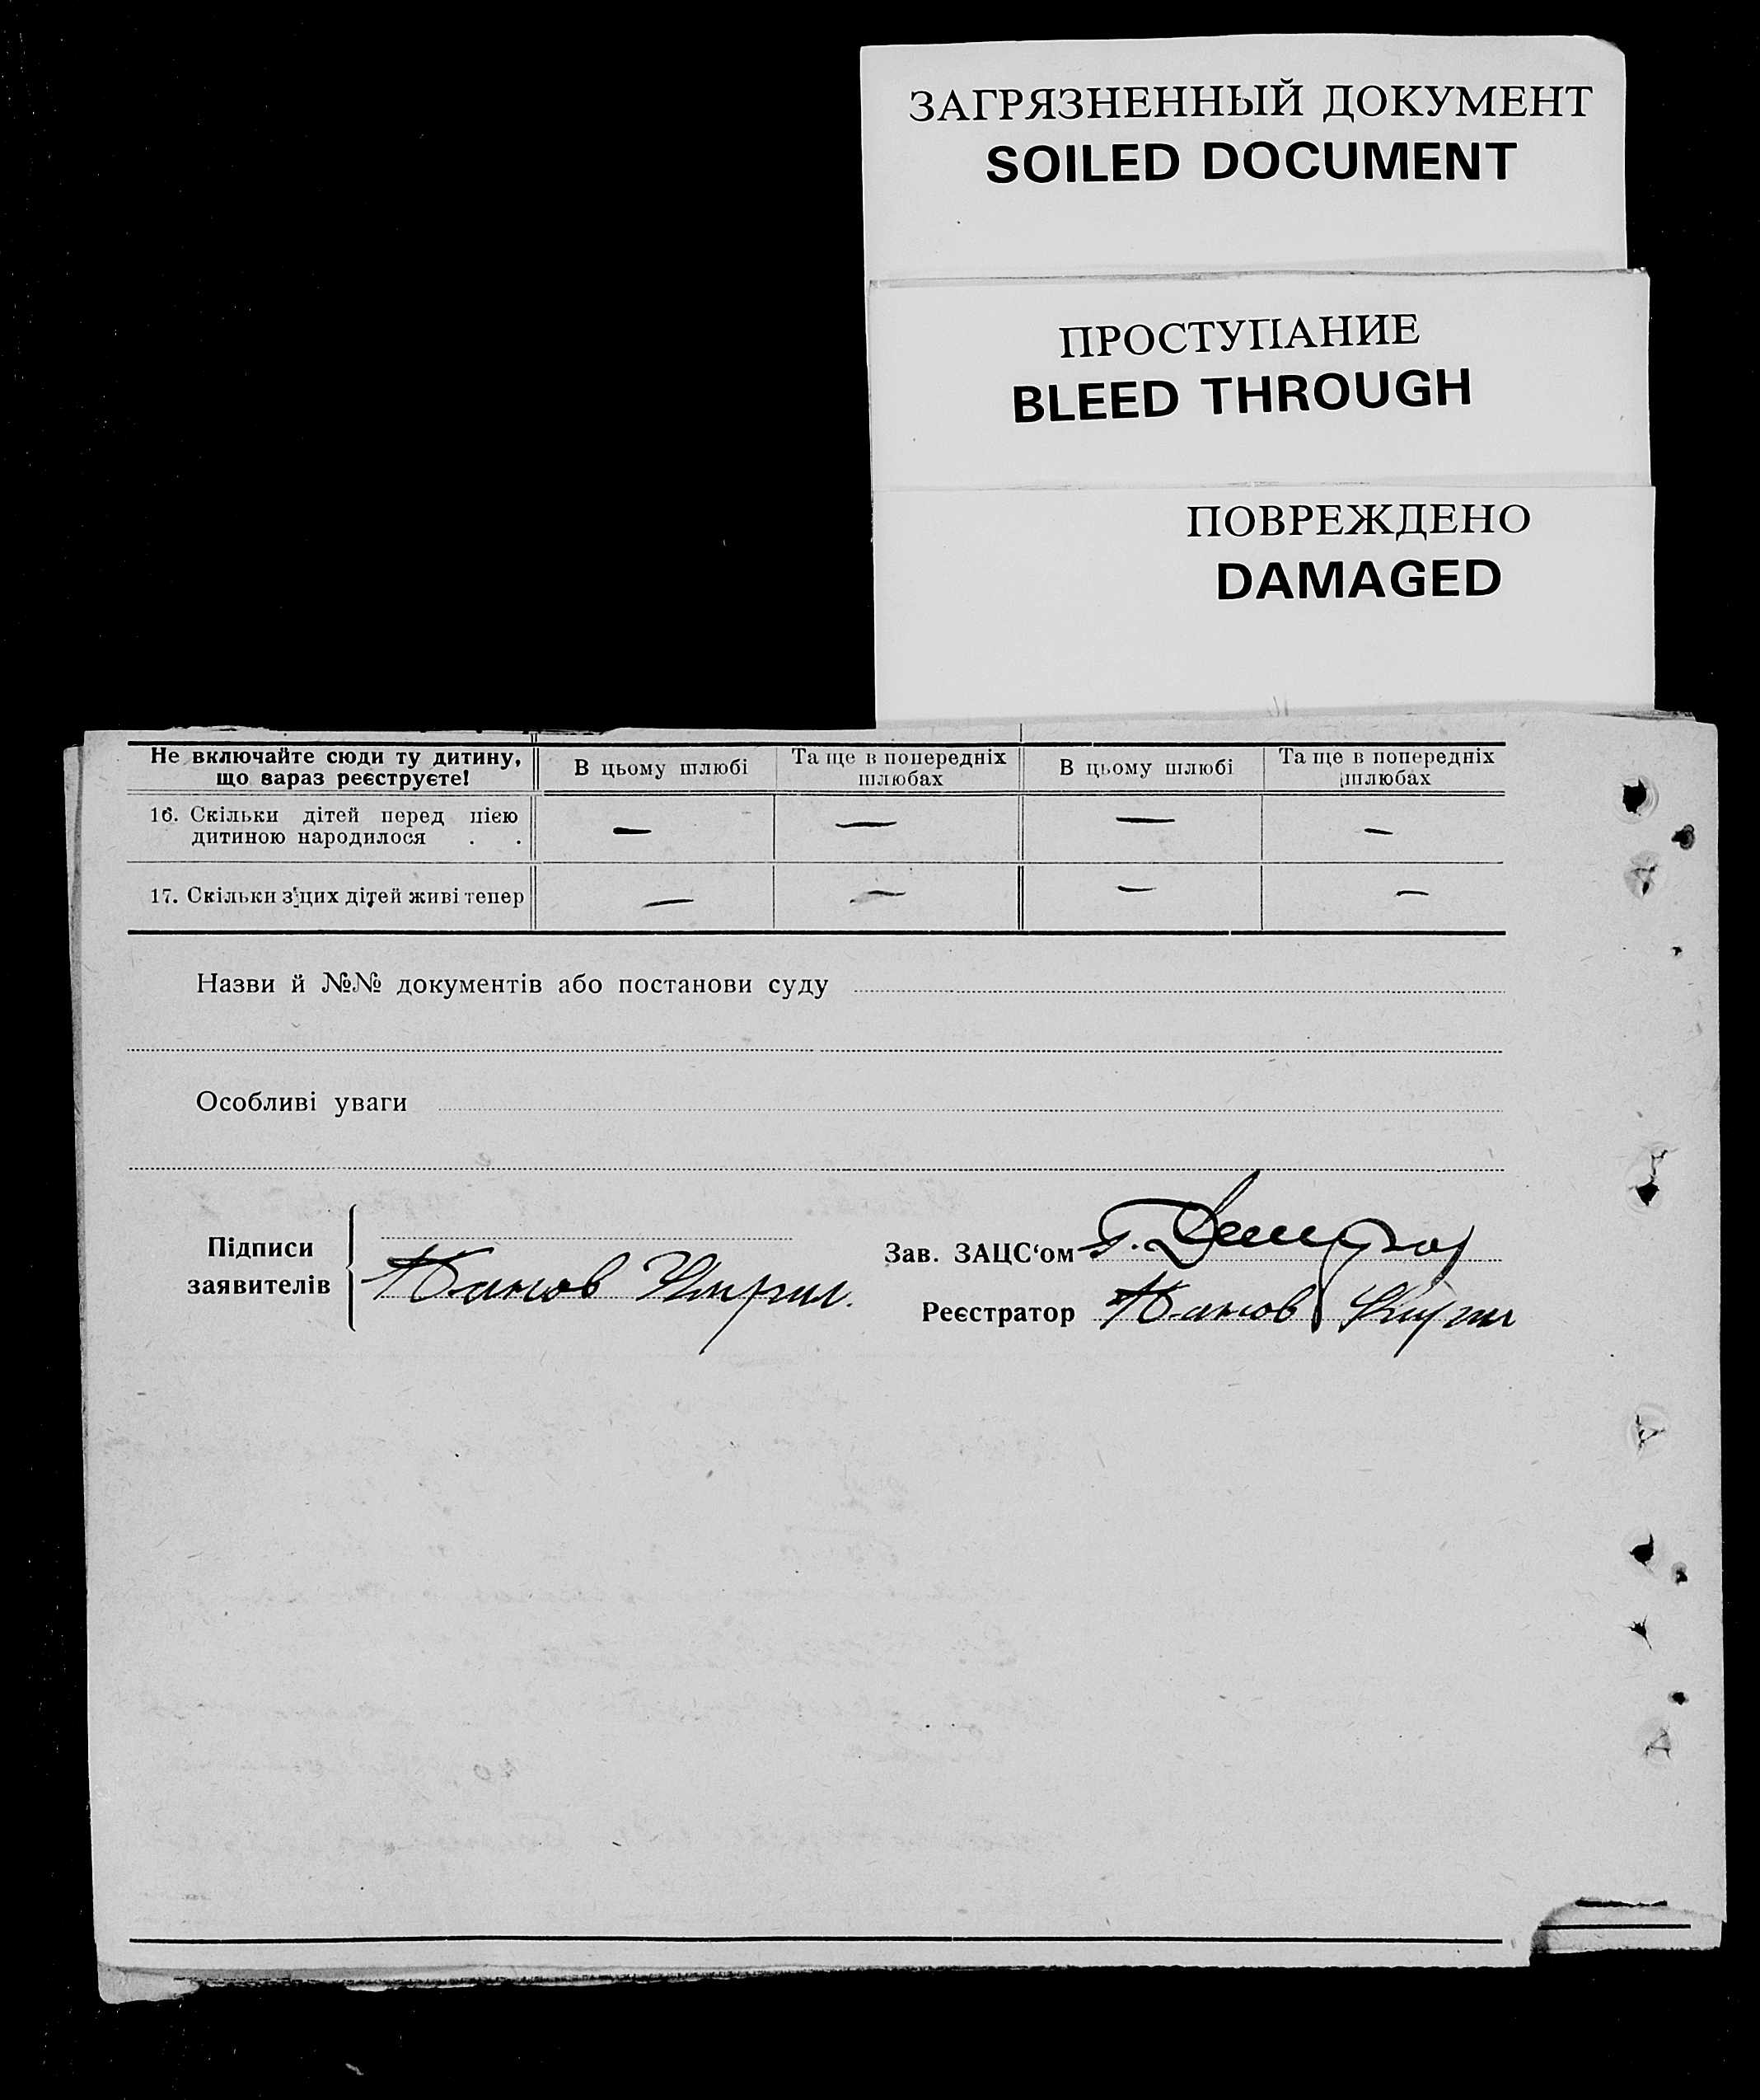 ЗАГРЯЗНЕННЫЙ ДОКУМЕНТ
SOILED DOCUMENT
ПРОСТУПАНИЕ
BLEED THROUGH
ПОВРЕЖДЕНО
DAMAGED
Не включайте сюди ту дитину, що вараз реєструєте!
В цьому шлюбі
Та ще в попередніх шлюбах
В цьому шлюбі
Та ще в попередніх шлюбах
16. Скільки дітей перед цією дитиною народилося . .
— — — —
17. Скільки з цих дітей живі тепер
— — — —
Назви й №№ документів або постанови суду
Особливі уваги
Підписи заявителів
Зав. ЗАЦС‘ом
Реєстратор